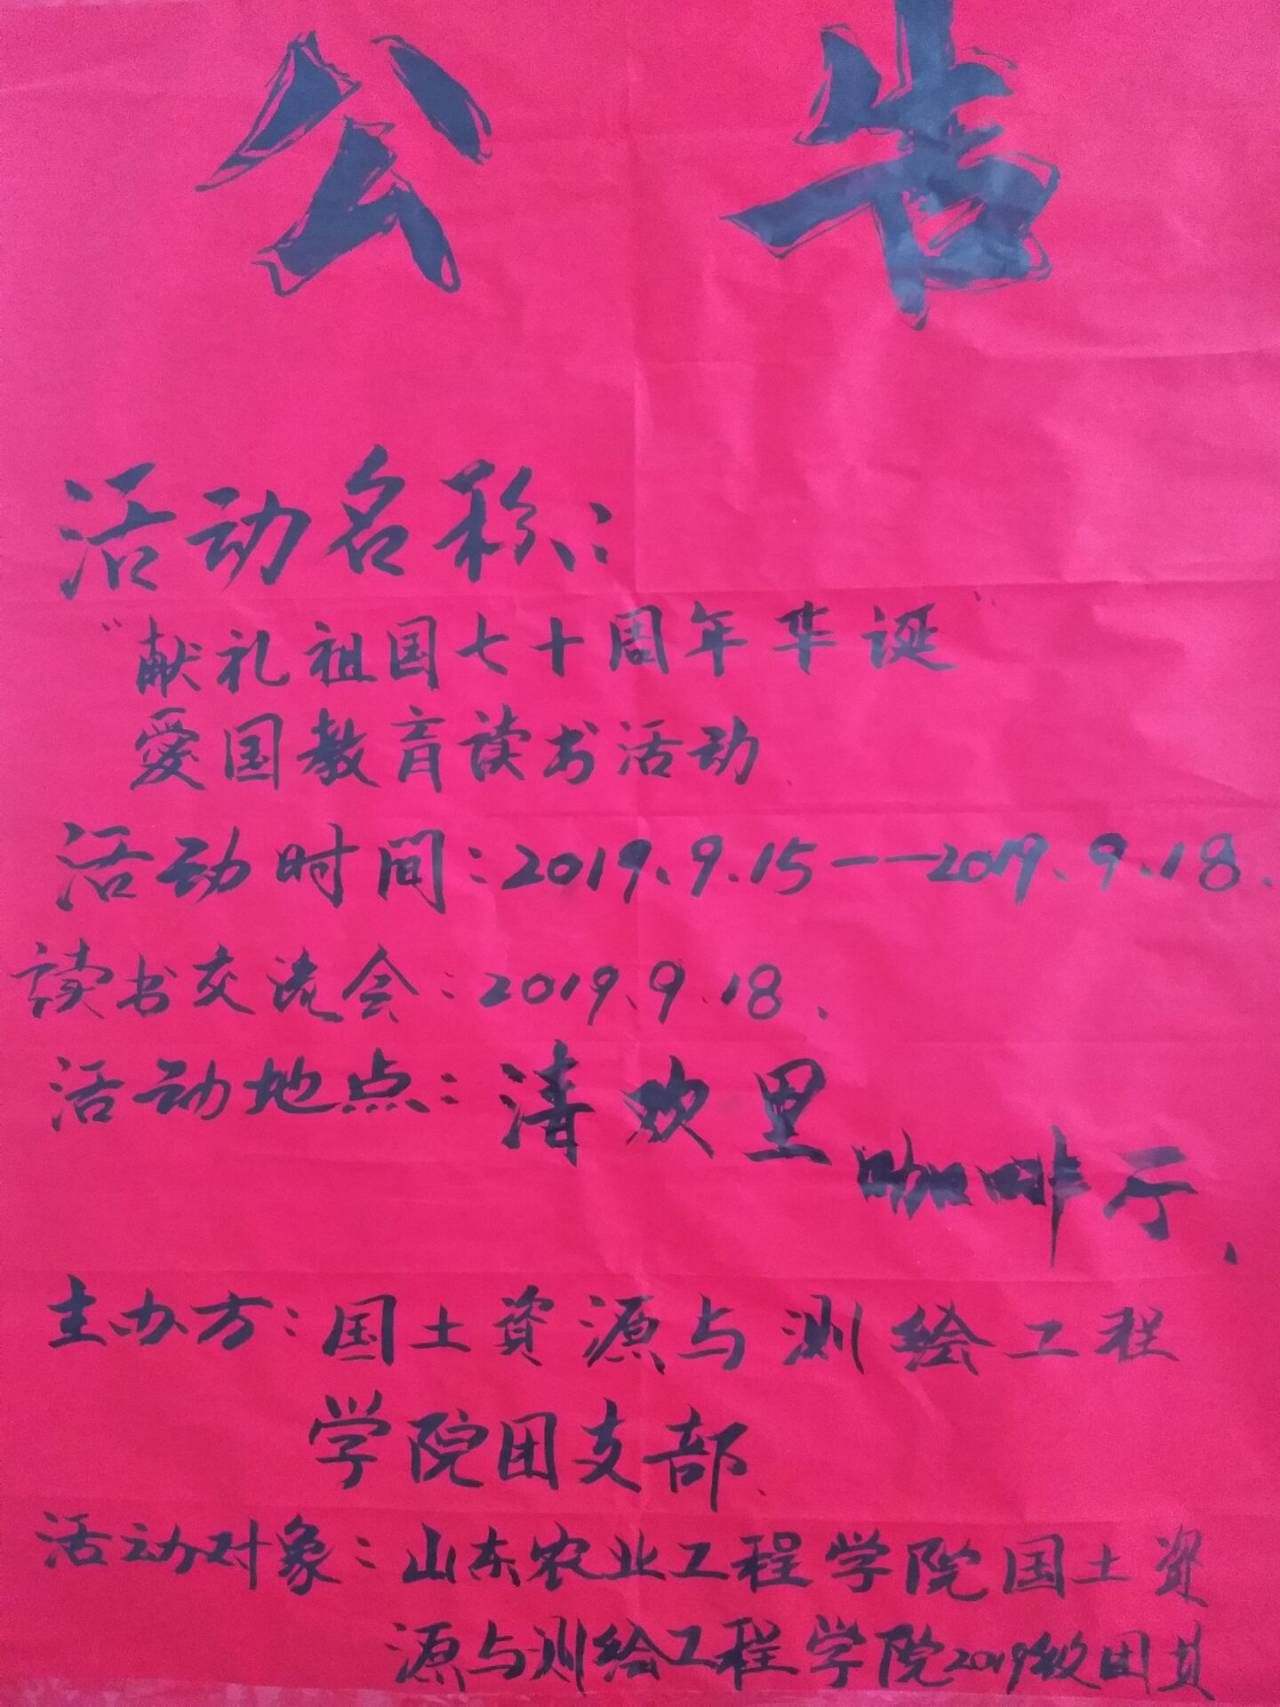 公告
活动名称：
“献礼祖国七十周年华诞”
愛国教育读书活动
活动时间：2019.9.15——2019.9.18.
读书交流会：2019.9.18.
活动地点：清欢里咖啡厅.
主办方：国土資源与测绘工程
学院团支部.
活动对象：山东农业工程学院国土资
源与测绘工程学院2019级团员